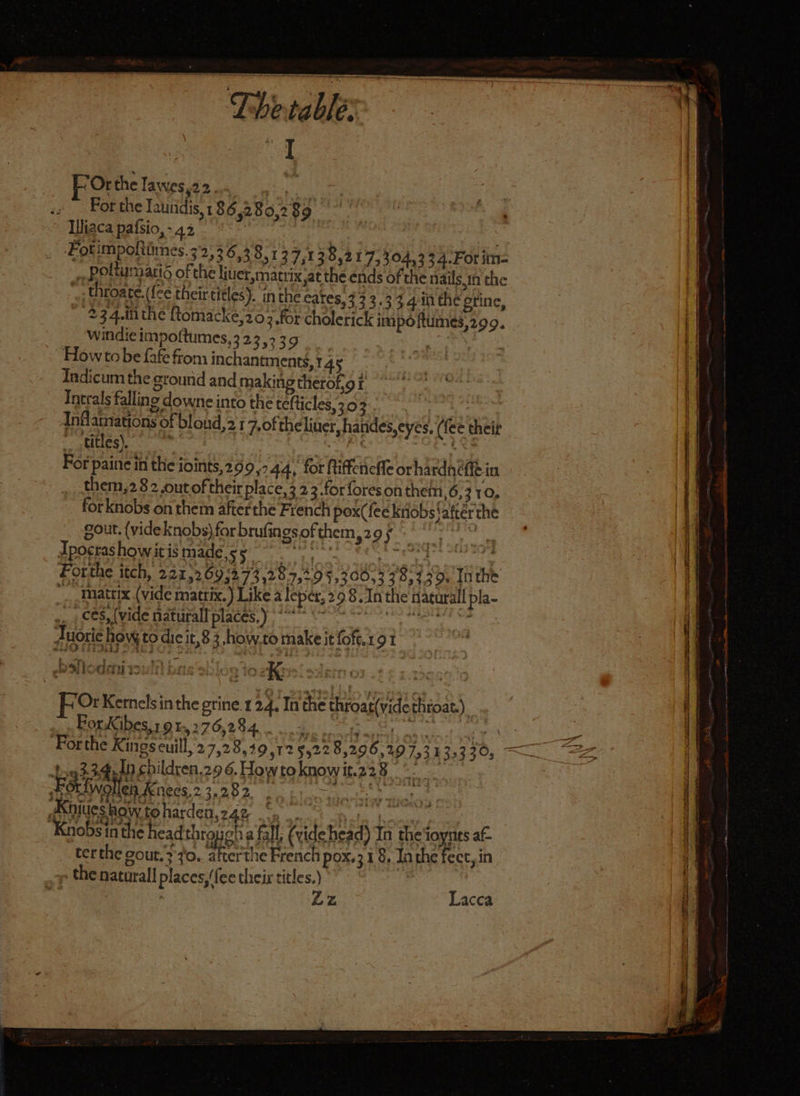 The table.
I
FOr the Iawes,22.
For the Iaundis,186,280,289
Illiaca passio,42
For impostumes.32,36,38,137,138,217,304,334.For im-
postumaris of the liuer,matrix,at the ends of the nails,in the
throate.(see their titles). in the eares,333.334 in the grine,
234.in the stomacke,203.for cholerick impostumes,299.
windie impostumes,323,339
How to be safe from inchantments,145
Indicum the ground and making therof,91
Intrals falling downe into the testicles,303
Inflamations of bloud,217.of the liuer,handes,eyes. (see their
titles).
For paine in the ioints,299,244, for stifnesse or hardnesse in
them,282,out of their place,323.for sores on them,6,310,
for knobs on them after the French pox(see knobs)after the
gout.(vide knobs)for brusings of them,295
Ipocras how it is made,55
For the itch, 221,269,273,287,295,300,338,339. In the
matrix (vide matrix.) Like a leper,298.In the naturall pla-
ces,(vide naturall places.)
Iuorie how to die it,83,how to make it soft.191
K
FOr Kernels in the grine.124. In the throat(vide throat.)
For Kibes,191,276,284.
For the Kings euill, 27,28,49,125,228,296,297,313,330,
334.In children.296.How to know it.228
For swollen Knees,23,282,
Kniues how to harden,242
Knobs in the head through a fall, (vide head) In the ioynts af-
ter the gout.340. after the French pox.318. In the feet,in
the naturall places,(see their titles.)
Zz Lacca